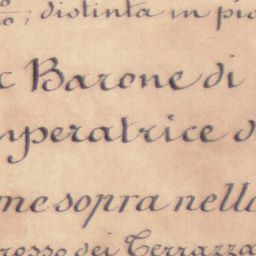 ; distinta in pi
Barone di
mperatrice d
me sopra nella
resso dei Terrazza